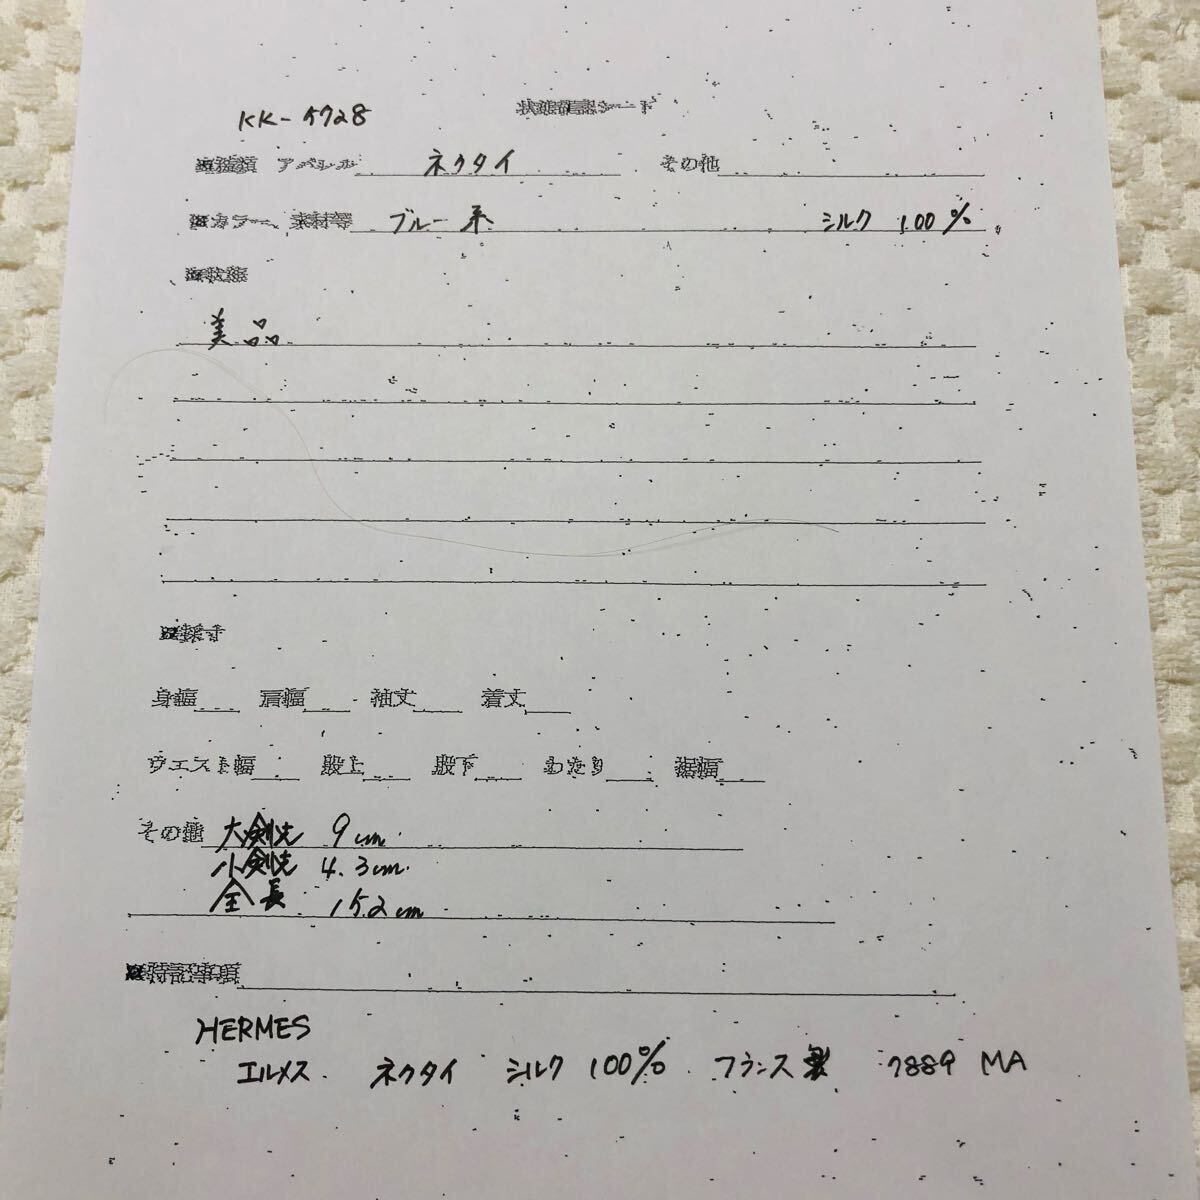 KK-5728
状態確認シート
※種類 アパレル ネクタイ その他
※カラー、素材等 ブルー系 シルク 100%
※状態
美品
※採寸
身幅 肩幅 袖丈 着丈
ウエスト幅 股上 股下 わたり 裾幅
その他 大剣先 9cm
小剣先 4.3cm
全長 152cm
※特記事項
HERMES
エルメス ネクタイ シルク 100% フランス製 7889 MA